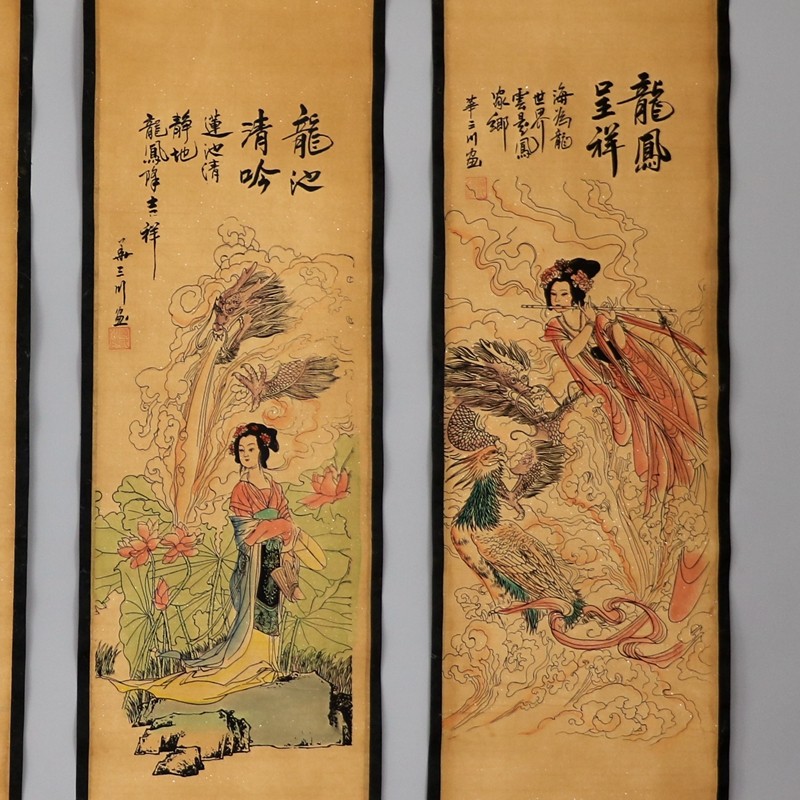 龍鳳
呈祥
海為龍
世界
雲是鳳
家鄉
華三川画
龍池
清吟
蓮池清
静地
龍鳳降吉祥
華三川画